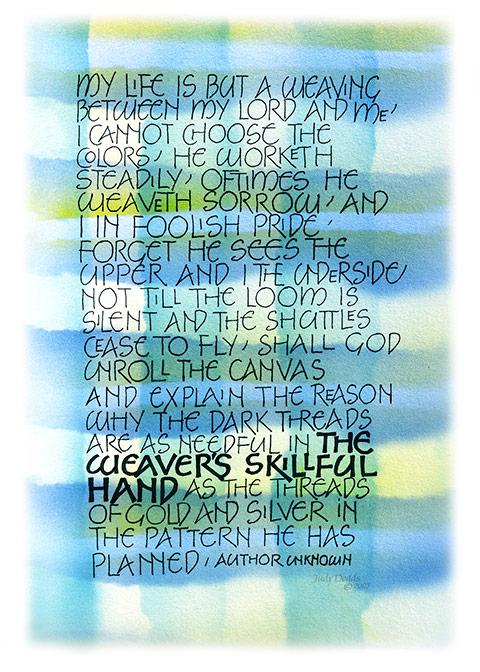 MY LIFE IS BUT A WEAVING
BETWEEN MY LORD AND ME,
I CANNOT CHOOSE THE
COLORS, HE WORKETH
STEADILY, OFTIMES HE
WEAVETH SORROW, AND
I IN FOOLISH PRIDE,
FORGET HE SEES THE
UPPER AND I THE UNDERSIDE,
NOT TILL THE LOOM IS
SILENT AND THE SHUTTLES
CEASE TO FLY, SHALL GOD
UNROLL THE CANVAS
AND EXPLAIN THE REASON
WHY THE DARK THREADS
ARE AS NEEDFUL IN THE
WEAVER'S SKILLFUL
HAND AS THE THREADS
OF GOLD AND SILVER IN
THE PATTERN HE HAS
PLANNED, AUTHOR UNKNOWN
Judy Dodds
© 2007